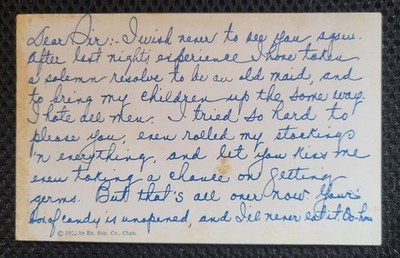 Dear Sir:- I wish never to see you again.
After last nights experience I have taken
a solemn resolve to be an old maid, and
to bring my children up the same way.
I hate all men. I tried so hard to
please you, even rolled my stockings
'n everything, and let you kiss me
even taking a chance on getting
germs. But that's all over now. Your
box of candy is unopened, and I'll never eat it. Oo-hoo
© by Ex. Sup. Co., Chgo.